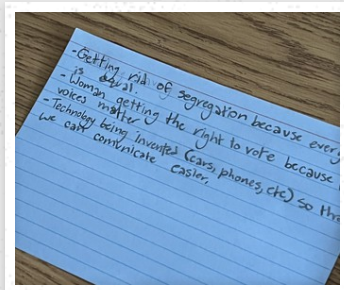 -Getting rid of segregation because every
is equal.
-Woman getting the right to vote because
voices matter
-Technology being invented (cars, phones, etc) so thr
we can comunicate easier.